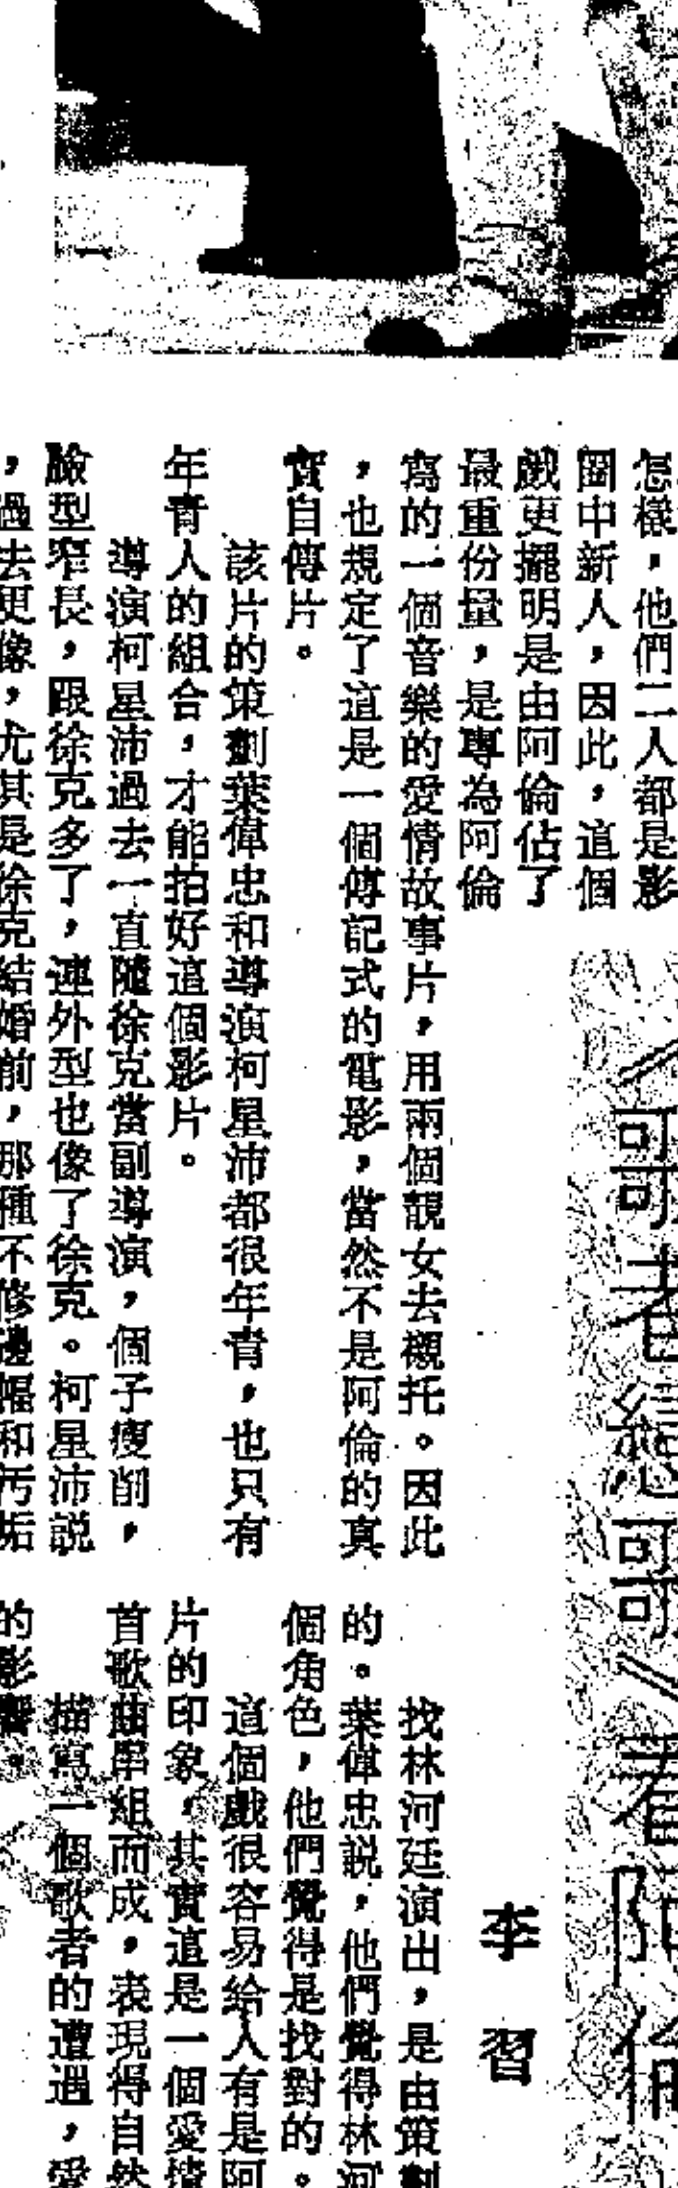 《歌者戀歌》看阿倫
李習
怎樣，他們二人都是影
圈中新人，因此，這個
戲更擺明是由阿倫佔了
最重份量，是專為阿倫
寫的一個音樂的愛情故事片，用兩個靚女去襯托。因此
，也規定了這是一個傳記式的電影，當然不是阿倫的真
實自傳片。
該片的策劃葉偉忠和導演柯星沛都很年青，也只有
年青人的組合，才能拍好這個影片。
導演柯星沛過去一直隨徐克當副導演，個子瘦削，
臉型窄長，跟徐克多了，連外型也像了徐克。柯星沛説
，過去更像，尤其是徐克結婚前，那種不修邊幅和污垢
找林河廷演出，是由策劃
的。葉偉忠説，他們覺得林河
個角色，他們覺得是找對的。
這個戲很容易給人有是阿
片的印象，其實這是一個愛情
首歌曲串組而成，表現得自然
描寫一個歌者的遭遇，愛
的影響。